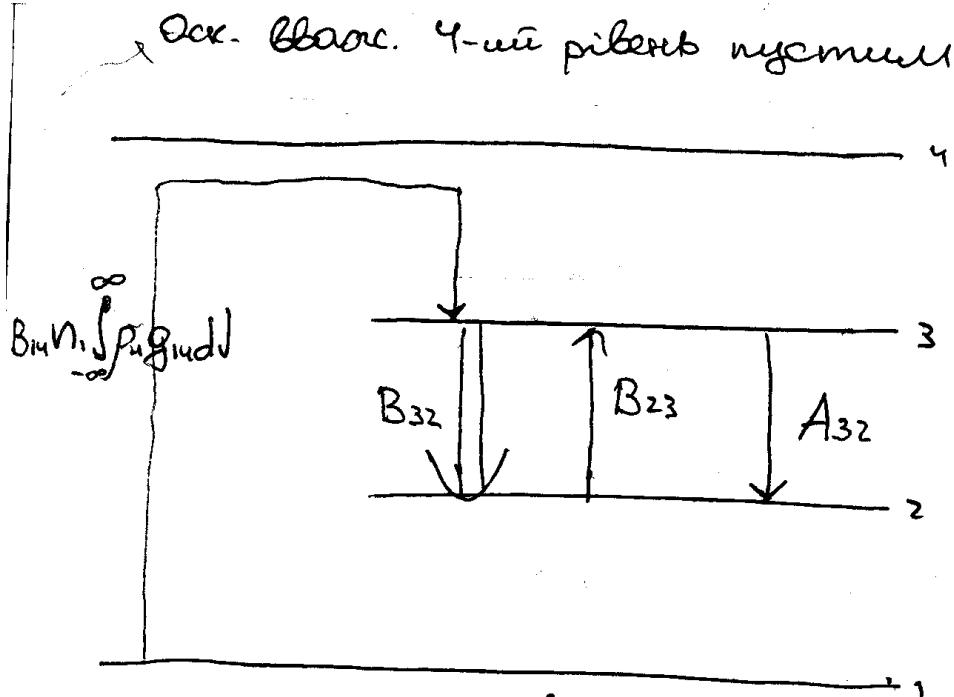 Оск. вваж. 4-ий рівень пустим
4
B₁₄n₁∫ρ₁₄g₁₄dν
∞
-∞
3
B₃₂
B₂₃
A₃₂
2
1